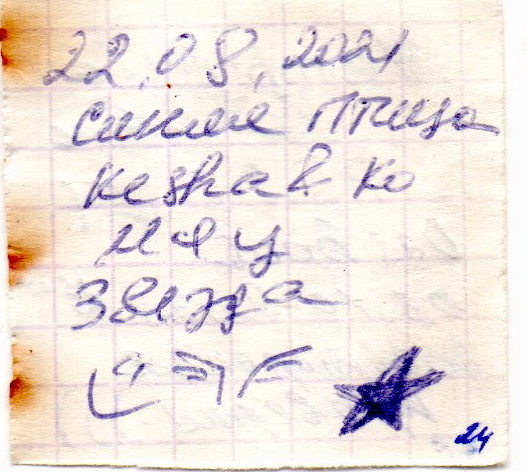 22.08.2021
синяя птица
Kesha & Ko
мяу
звезда
24